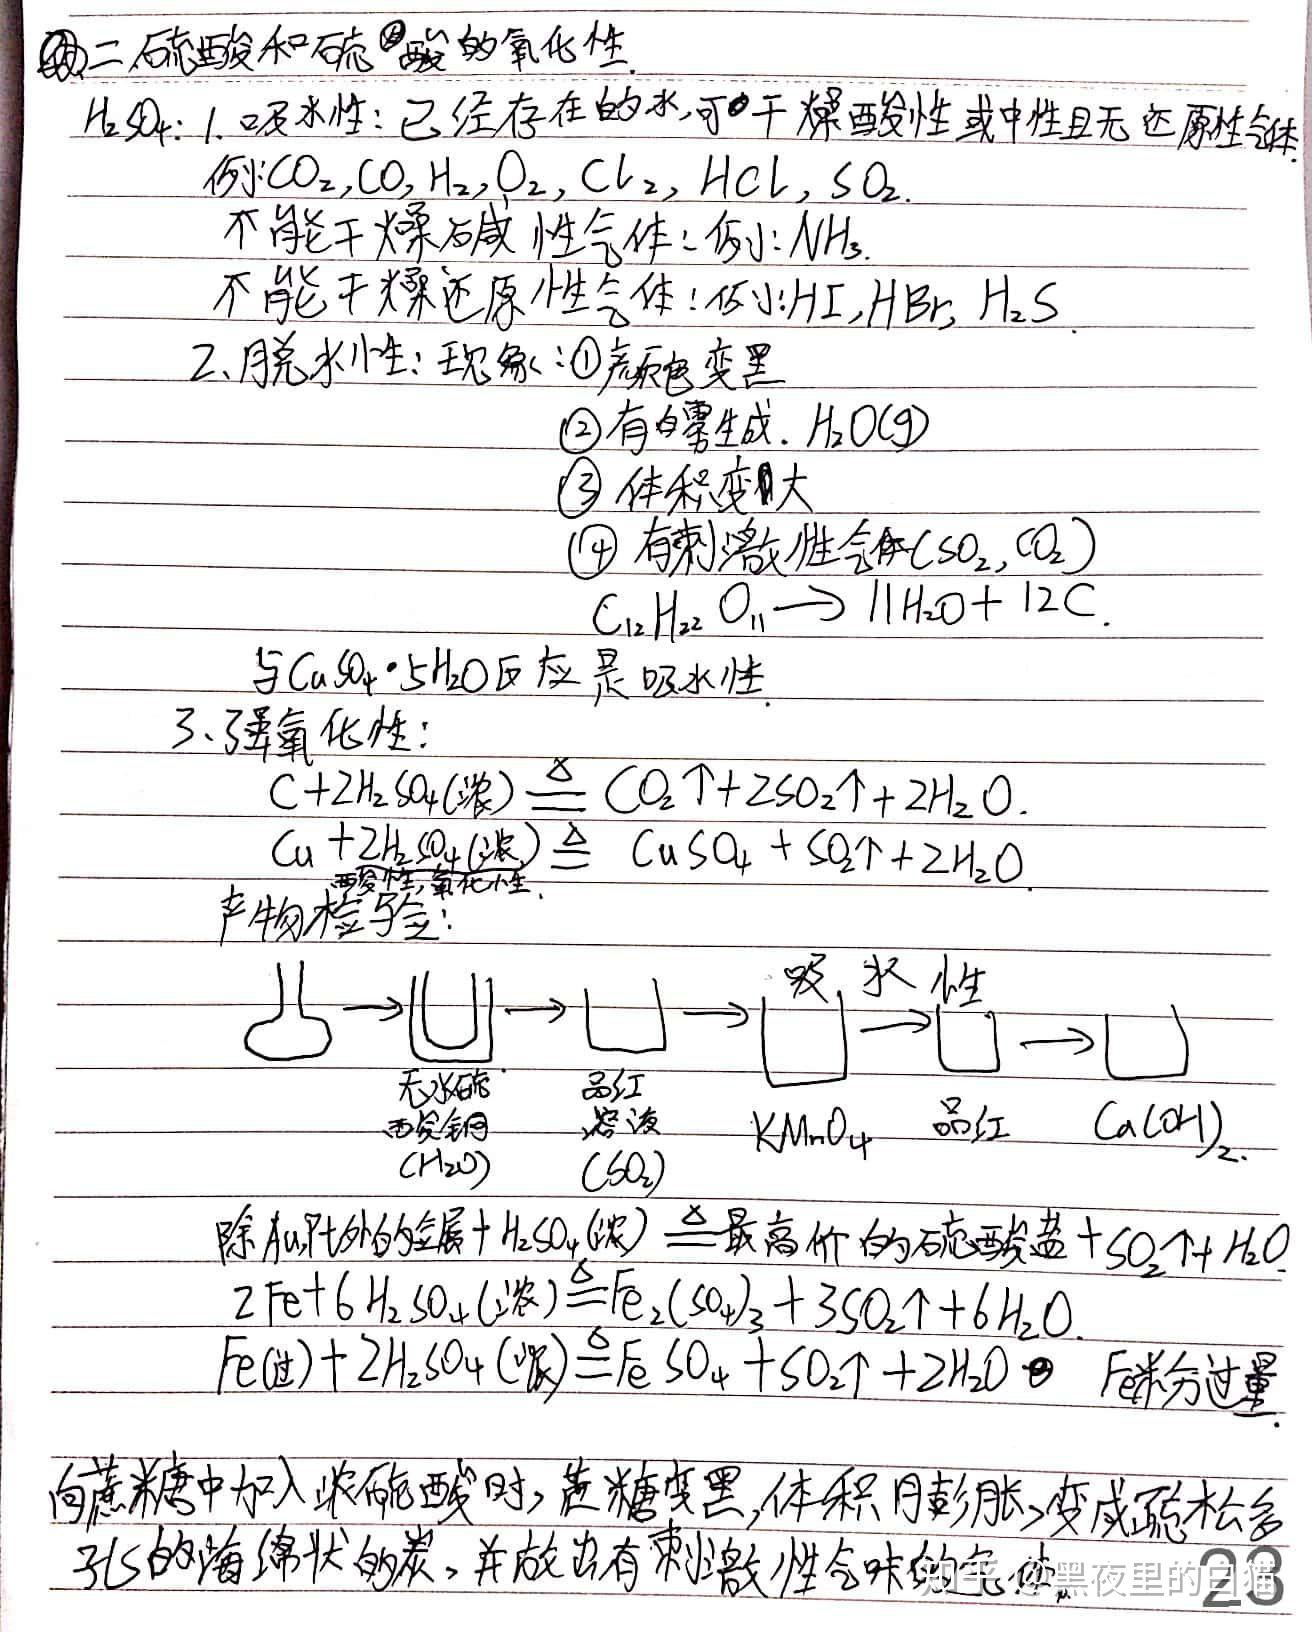 二硫酸和硫酸的氧化性.
H₂SO₄: 1. 吸水性: 已经存在的水,可干燥酸性或中性且无还原性气体.
例:CO₂,CO,H₂,O₂,Cl₂,HCl,SO₂.
不能干燥碱性气体:例:NH₃.
不能干燥还原性气体:例:HI,HBr,H₂S.
2、脱水性:现象:①颜色变黑
②有白雾生成.H₂O(g)
③体积变大
④有刺激性气体(SO₂,CO₂)
C₁₂H₂₂O₁₁→11H₂O+12C.
与CuSO₄·5H₂O反应是吸水性.
3、强氧化性:
C+2H₂SO₄(浓)≜CO₂↑+2SO₂↑+2H₂O.
Cu+2H₂SO₄(浓)≜CuSO₄+SO₂↑+2H₂O.
酸性,氧化性.
产物检验:
吸水性
→ → → → →
无水硫酸铜(H₂O) 品红溶液(SO₂) KMnO₄ 品红 Ca(OH)₂.
除Au,Pt外的金属+H₂SO₄(浓)≜最高价的硫酸盐+SO₂↑+H₂O.
2Fe+6H₂SO₄(浓)≜Fe₂(SO₄)₃+3SO₂↑+6H₂O.
Fe(过)+2H₂SO₄(浓)≜FeSO₄+SO₂↑+2H₂O Fe粉过量.
向蔗糖中加入浓硫酸时,蔗糖变黑,体积膨胀,变成疏松多
孔的海绵状的炭,并放出有刺激性气味的气体.
知乎 @黑夜里的白猫
23